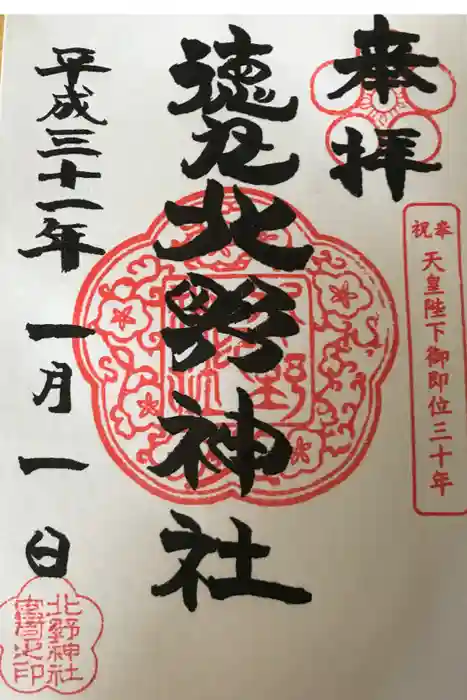 奉拝
奉祝 天皇陛下御即位三十年
徳丸北野神社
平成三十一年一月一日
北野神社
之印